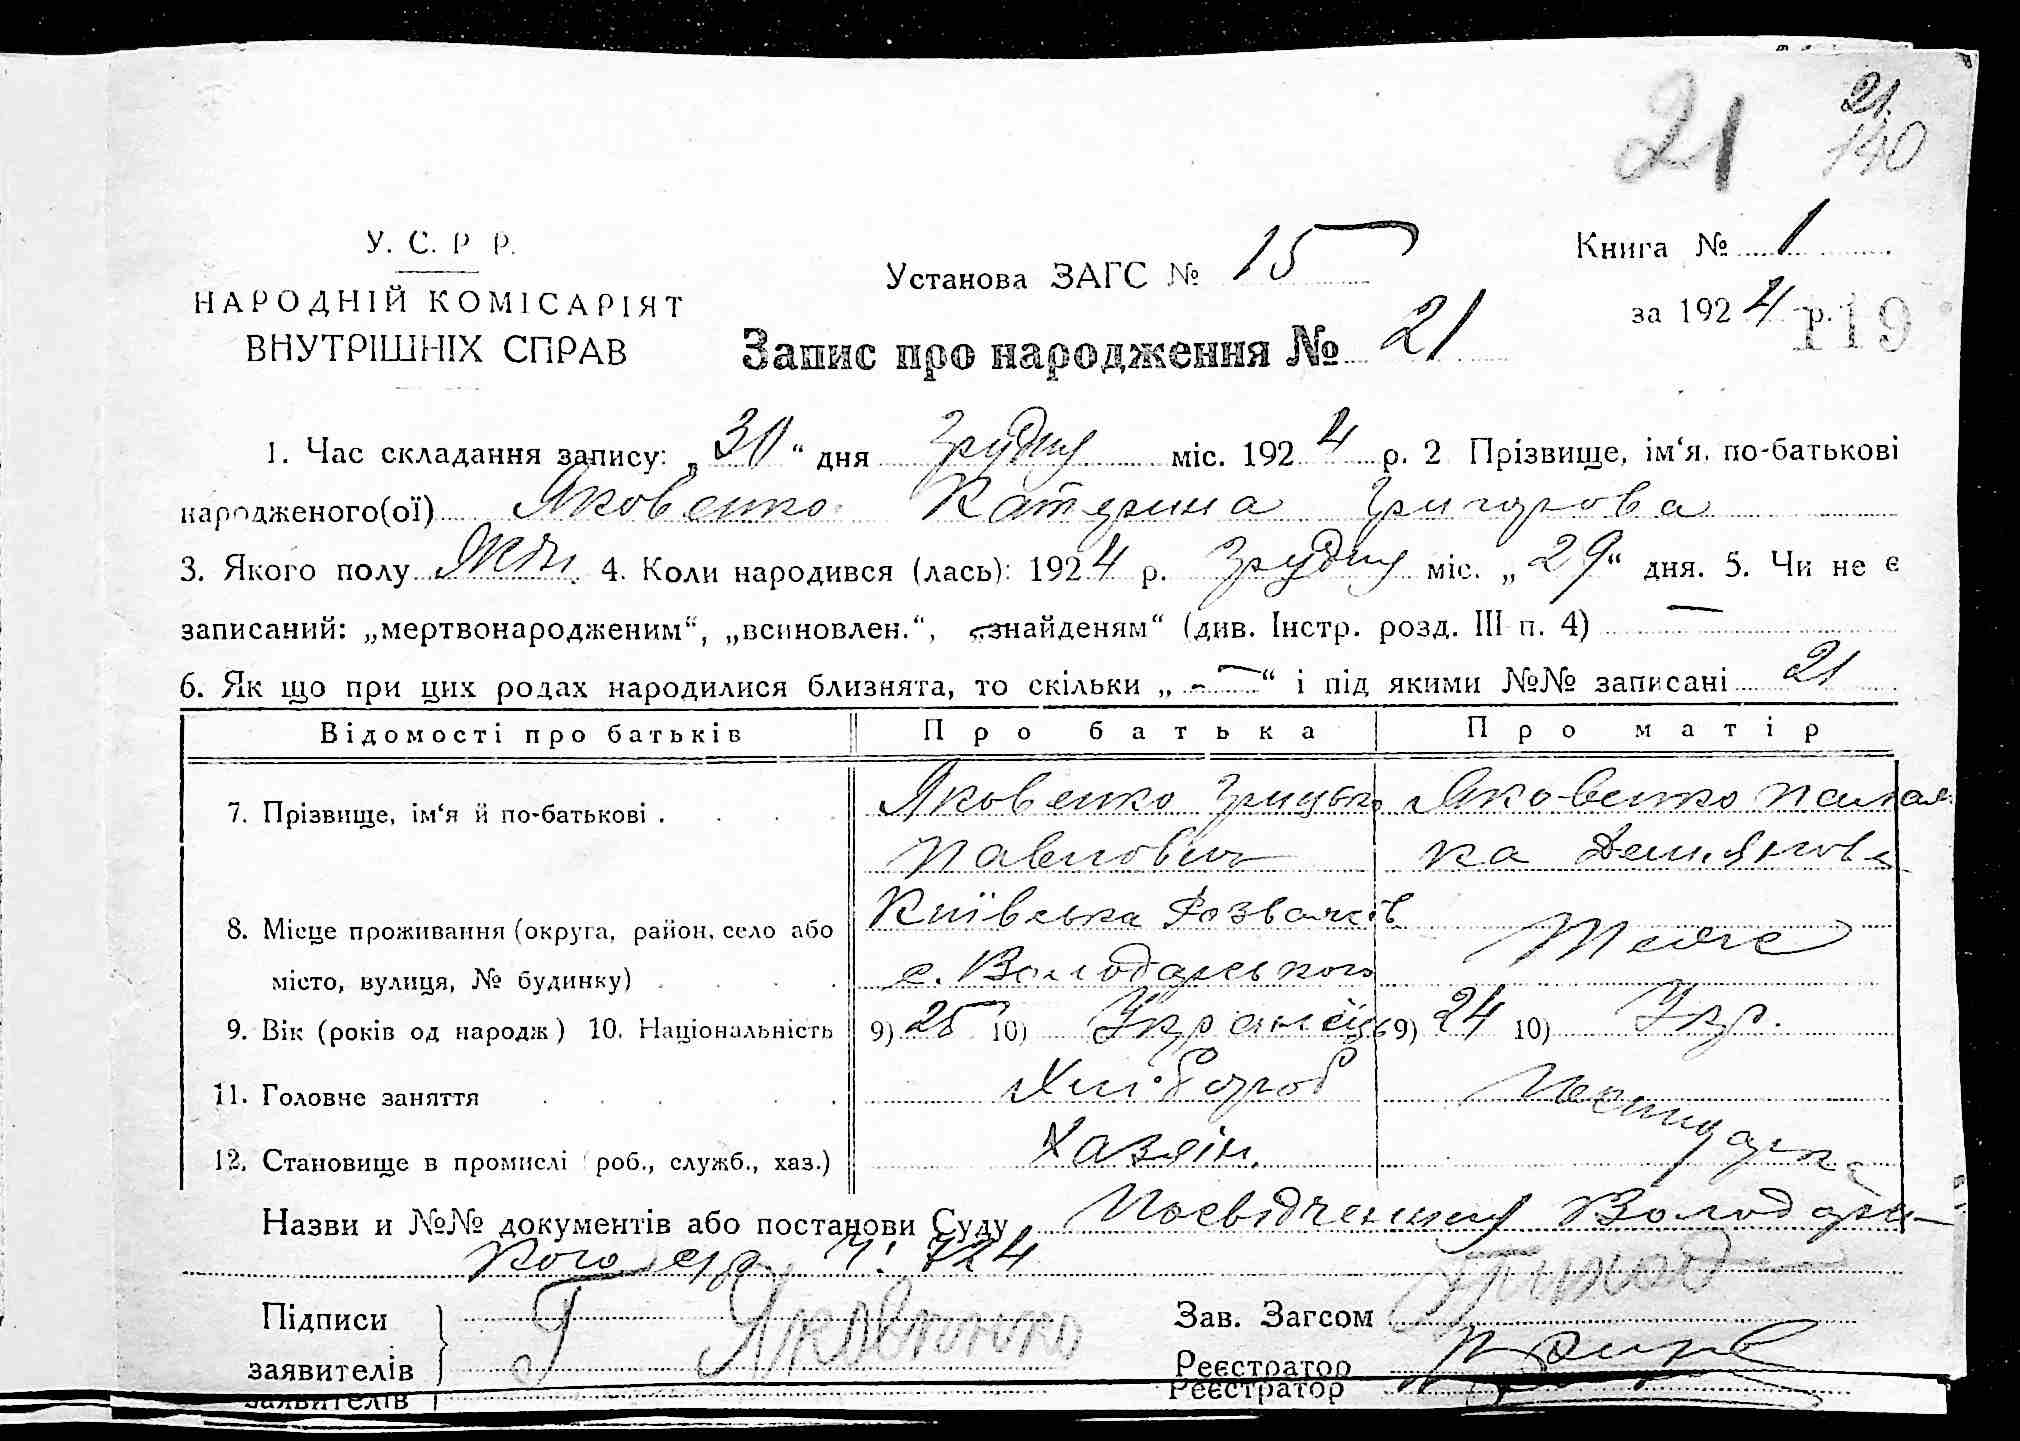 21
21
140
У. С. Р Р.
НАРОДНІЙ КОМІСАРІЯТ
ВНУТРІШНІХ СПРАВ
Установа ЗАГС № 15
Книга № 1
за 1924 р.
119
Запис про народження № 21
1. Час складання запису: „30“ дня Грудня міс. 1924 р. 2 Прізвище, ім‘я, по-батькові
народженого(ої) Яковенко Катерина Григорова
3. Якого полу Жін. 4. Коли народився (лась): 1924 р. Грудня міс. „29“ дня. 5. Чи не є
записаний: „мертвонародженим“, „всиновлен.“, „знайденям“ (див. Інстр. розд. III п. 4) —
6. Як що при цих родах народилися близнята, то скільки „-—“ і під якими №№ записані 21
Відомості про батьків Про батька Про матір
7. Прізвище, ім‘я й по-батькові . Яковенко Грицько Яковенко
Павлович ка Демянова
8. Місце проживання (округа, район, село або Київська Розважів
місто, вулиця, № будинку) с. Володарського Теже
9. Вік (років од народж) 10. Національність 9) 25 10) Українець 9) 24 10) Укр.
11. Головне заняття Хлібороб
12. Становище в промислі (роб., служб., хаз.) Хазяін.
Назви и №№ документів або постанови Суду Посвідчення Володарсь-
кого с/р ч: 724
Підписи
заявителів
Г Яковенко
Зав. Загсом
Реєстратор
заявителів
Реєстратор